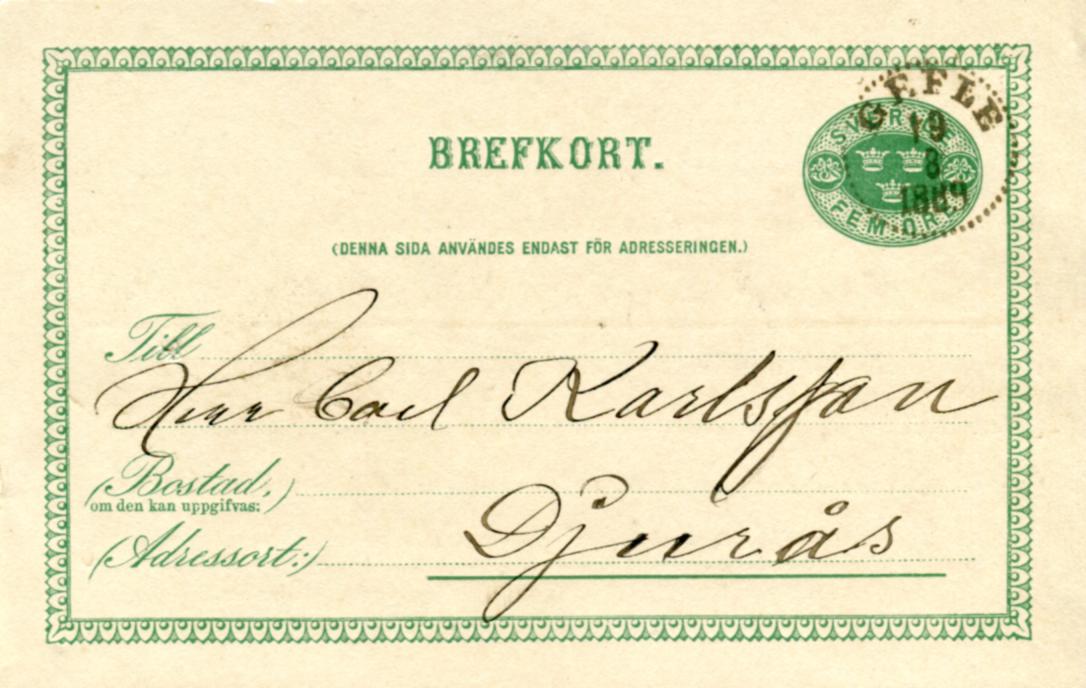 GEFLE
19
8
1889
SVERIGE
FEM ÖRE
BREFKORT.
(DENNA SIDA ANVÄNDES ENDAST FÖR ADRESSERINGEN.)
Till
Herr Carl Karlsson
(Bostad,)
om den kan uppgifvas:)
Djurås
(Adressort:)